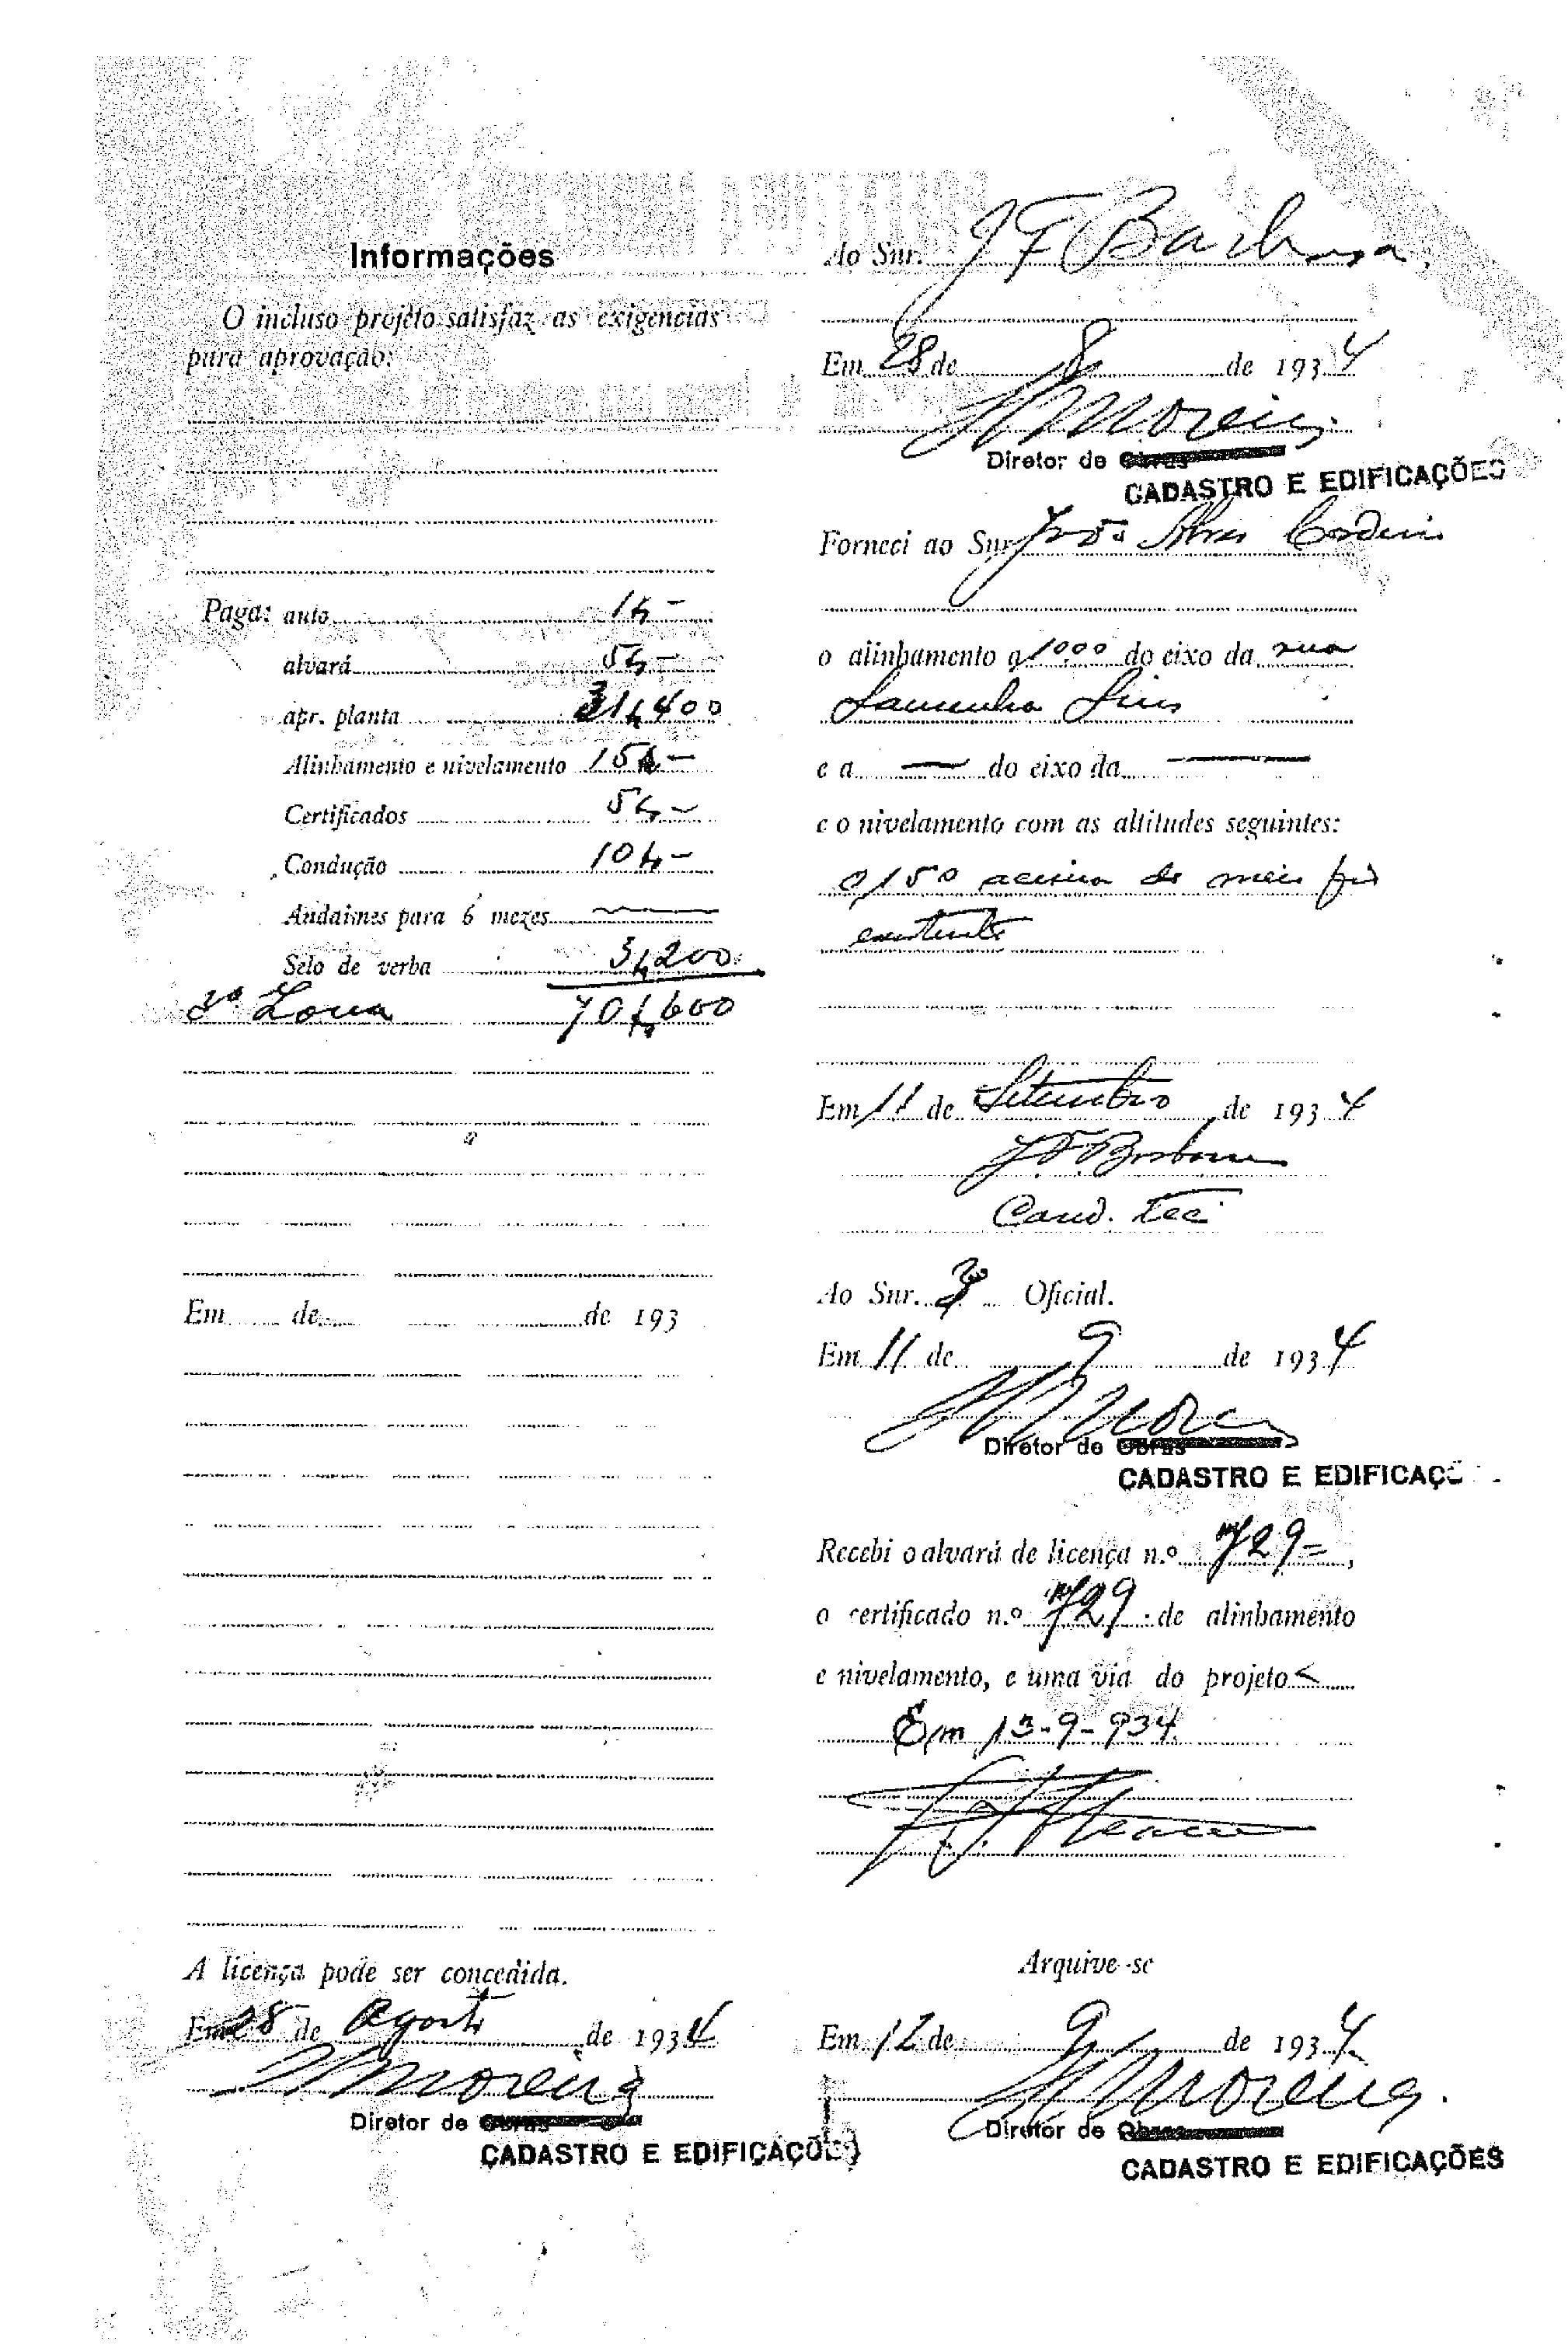 Informações
O incluso projéto satisfaz as exigencias
para aprovação:
Paga: auto 1$-
alvará 5$-
apr. planta 31$400
Alinhamento e nivelamento 15$-
Certificados 5$-
Condução 10$-
Andaimes para 6 mezes
Selo de verba 3$200
3ª Zona 70$600
Em de de 193
A licença pode ser concedida.
Em 28 de Agosto de 1934
Moreira
Diretor de Obras
CADASTRO E EDIFICAÇÕES
Ao Snr. J F Barbosa
Em 28 de 8 de 1934
Moreira
Diretor de Obras
CADASTRO E EDIFICAÇÕES
Forneci ao Snr João Alves Cordeiro
o alinhamento a 10,00 do eixo da rua
Saldanha
e a — do eixo da —
e o nivelamento com as altitudes seguintes:
0,150 acima do meio fio
existente
Em 11 de Setembro de 1934
J.F. Barbosa
Cond. Tec.
Ao Snr. 3º Oficial.
Em 11 de 9 de 1934
Moreira
Diretor de Obras
CADASTRO E EDIFICAÇ
Recebi o alvará de licença n.º 729=,
o certificado n.º 729 de alinhamento
e nivelamento, e uma via do projeto
Em 13-9-934.
Arquive-se
Em 12 de 9 de 1934
Moreira.
Diretor de Obras
CADASTRO E EDIFICAÇÕES